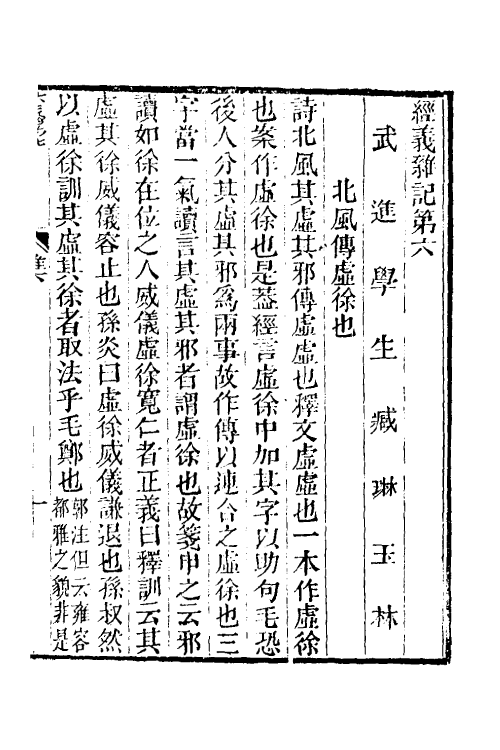 經義雜記第六
武進學生臧琳玉林
北風傳虛徐也
詩北風其虛其邪傳虛虛也釋文虛虛也一本作虛徐
也案作虛徐也是葢經言虛徐中加其字以助句毛恐
後人分其虛其邪爲兩事故作傳以連合之虛徐也三
字當一氣讀言其虛其邪者謂虛徐也故箋申之云邪
讀如徐在位之人威儀虛徐寬仁者正義曰釋訓云其
虛其徐威儀容止也孫炎曰虛徐威儀謙退也孫叔然
以虛徐訓其虛其徐者取法乎毛鄭也
郭注但云雍容
都雅之貌非是